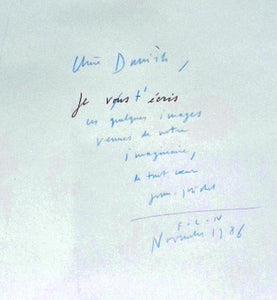 Chère Danièle,
Je vous t'écris
ces quelques images
venues de notre
imaginaire,
de tout cœur
F.L.N
Novembre 1986